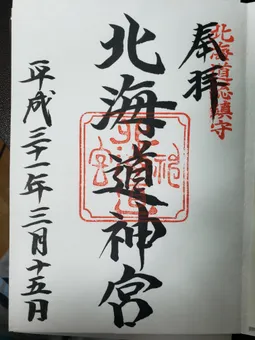 北海道総鎮守
奉拝
北海道神宮
平成三十一年三月十五日